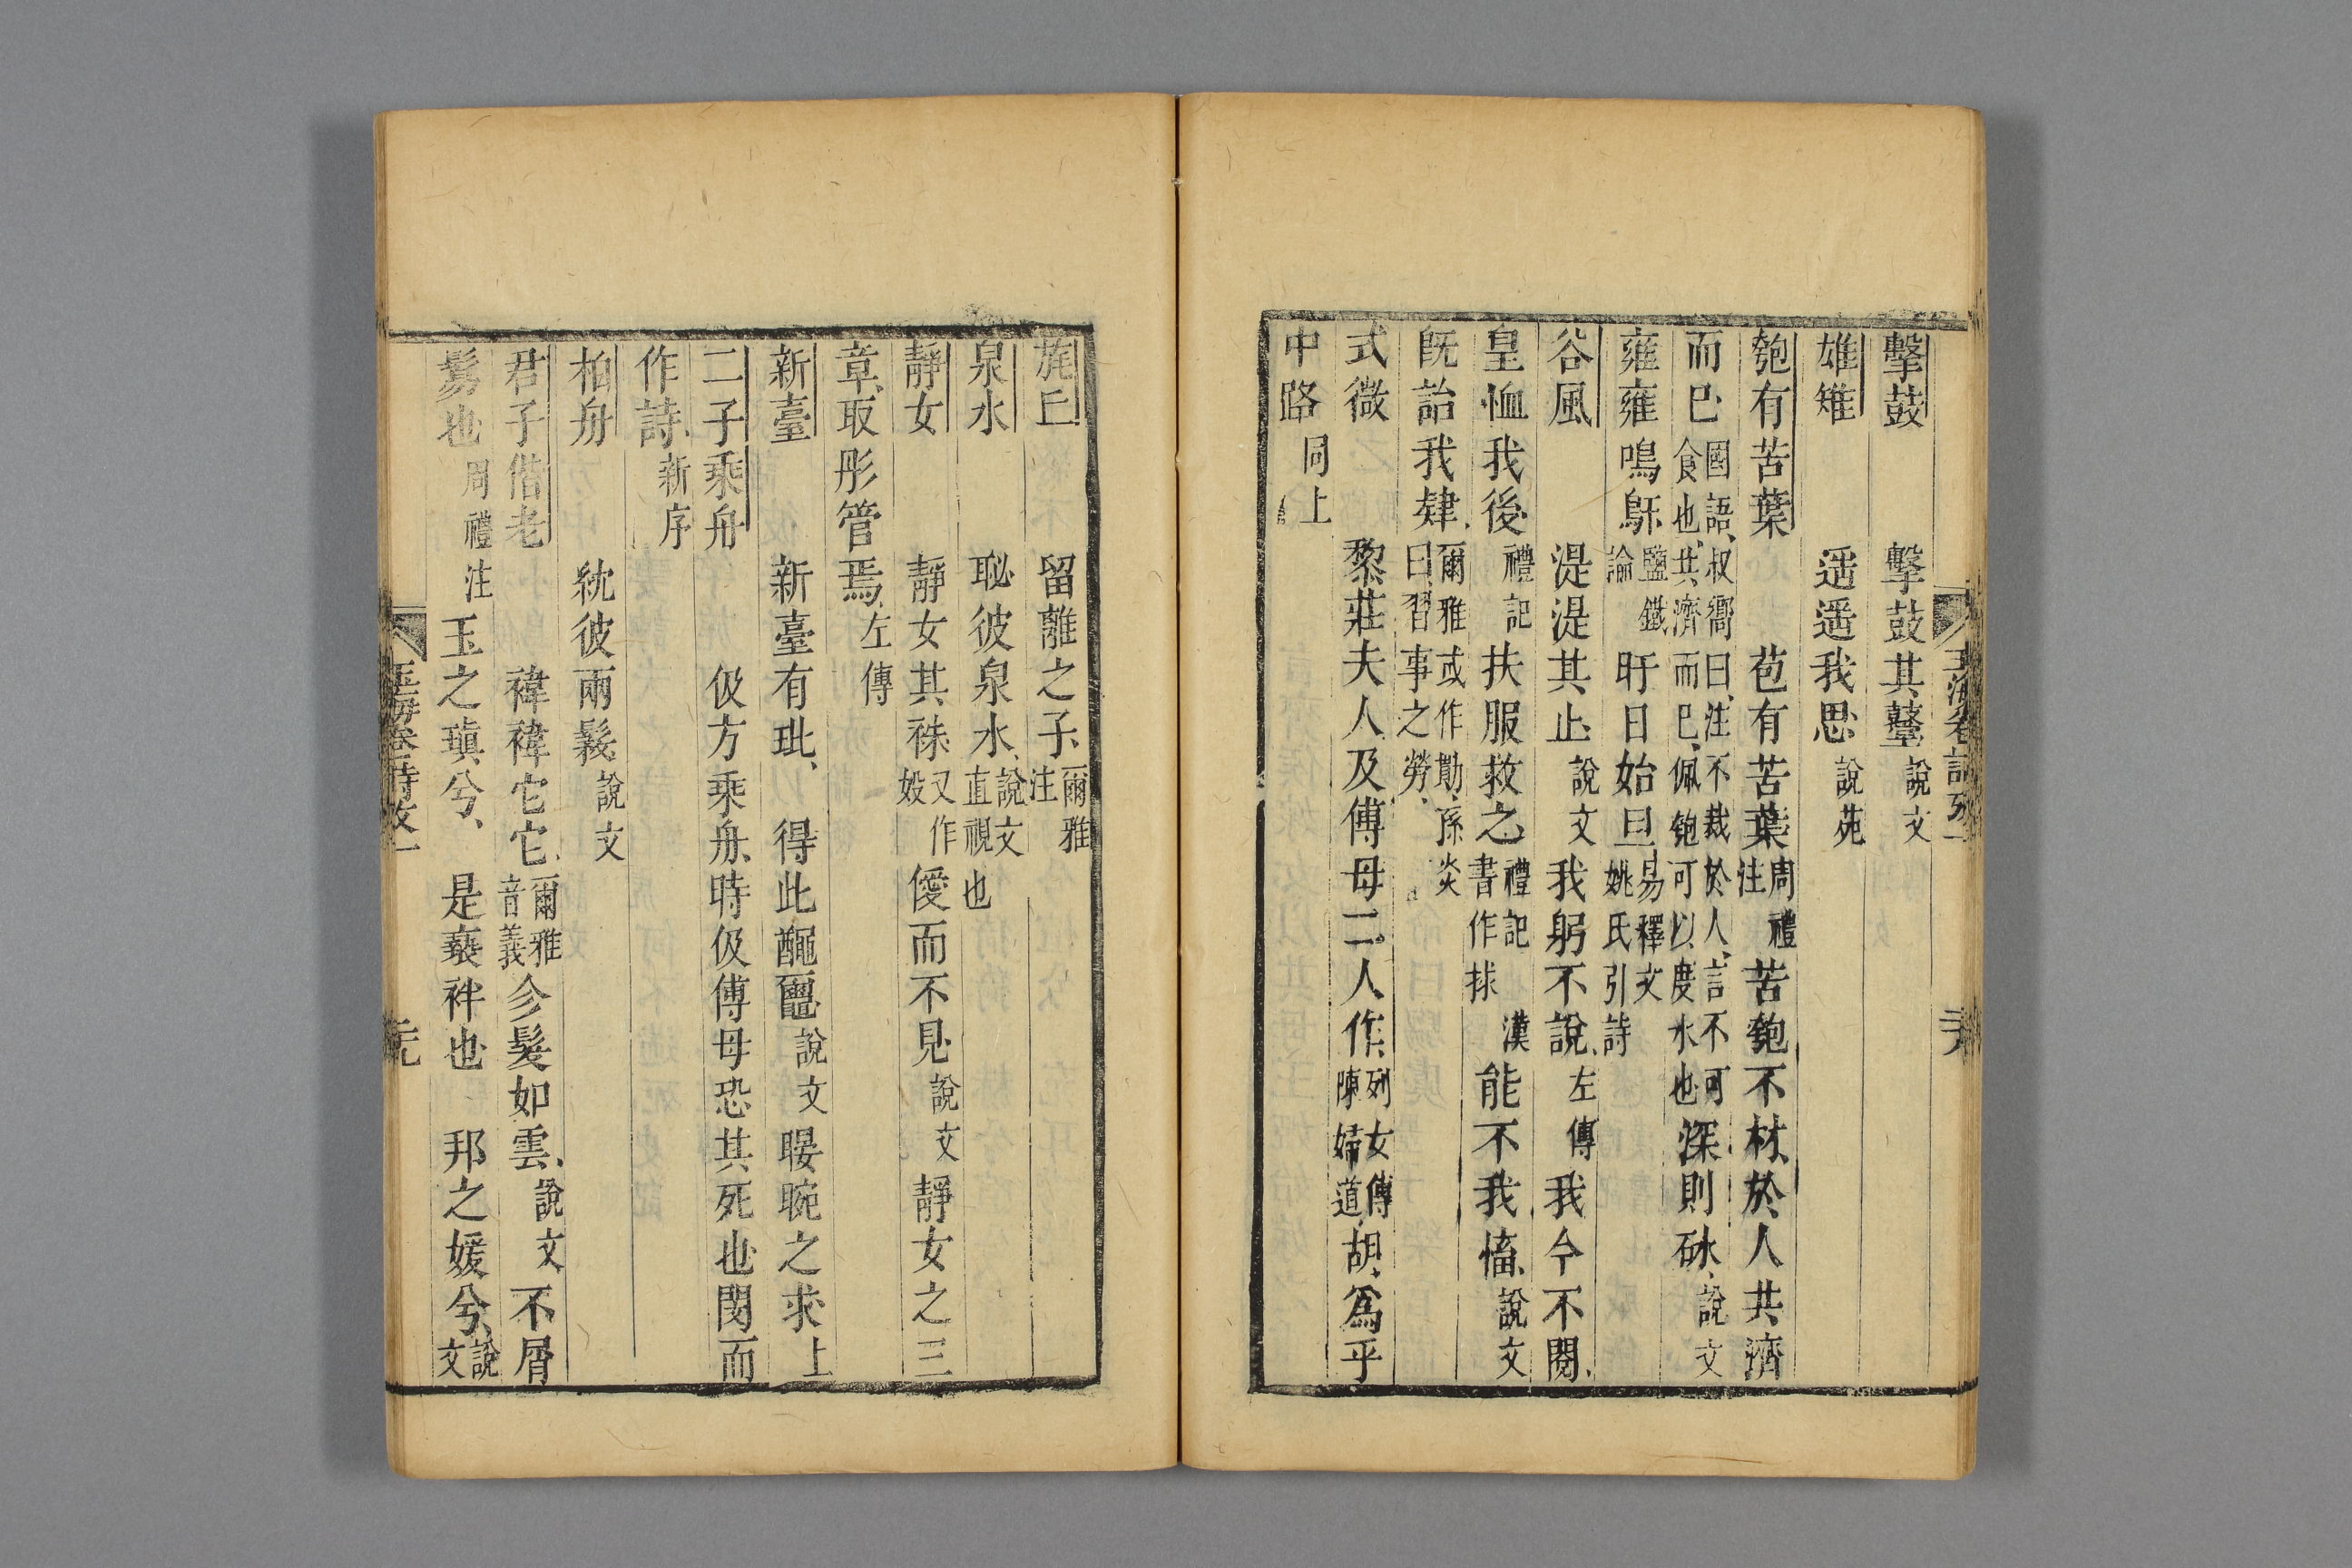 擊鼓 擊鼓其鼞說文
雄雉 遥遥我思說苑
匏有苦葉 苞有苦葉周禮注苦匏不材於人共濟
而已國語叔嚮曰注不裁於人言不可食也共濟而已佩匏可以度水也深則砅說文
雍雍鳴鳱鹽鐵論旴日始旦易釋文姚氏引詩
谷風 湜湜其止說文我躬不說左傳我今不閱
皇恤我後禮記扶服救之禮記漢書作捄能不我慉說文
旣詒我肄爾雅或作勩孫炎曰習事之勞
式微 黎莊夫人及傅母二人作列女傳陳婦道胡爲乎
中路同上
旄丘 留離之子爾雅注
泉水 䀣彼泉水說文直視也
靜女 靜女其袾又作㚫僾而不見說文靜女之三
章取彤管焉左傳
新臺 新臺有玼 得此𪓰𪓿說文䁙睕之求上
二子乘舟 伋方乘舟時伋傅母恐其死也閔而
作詩新序
柏舟 紞彼兩髳說文
君子偕老 褘褘它它爾雅音義㐱髮如雲說文不屑
鬄也周禮注玉之瑱兮 是褻袢也 邦之媛兮說文